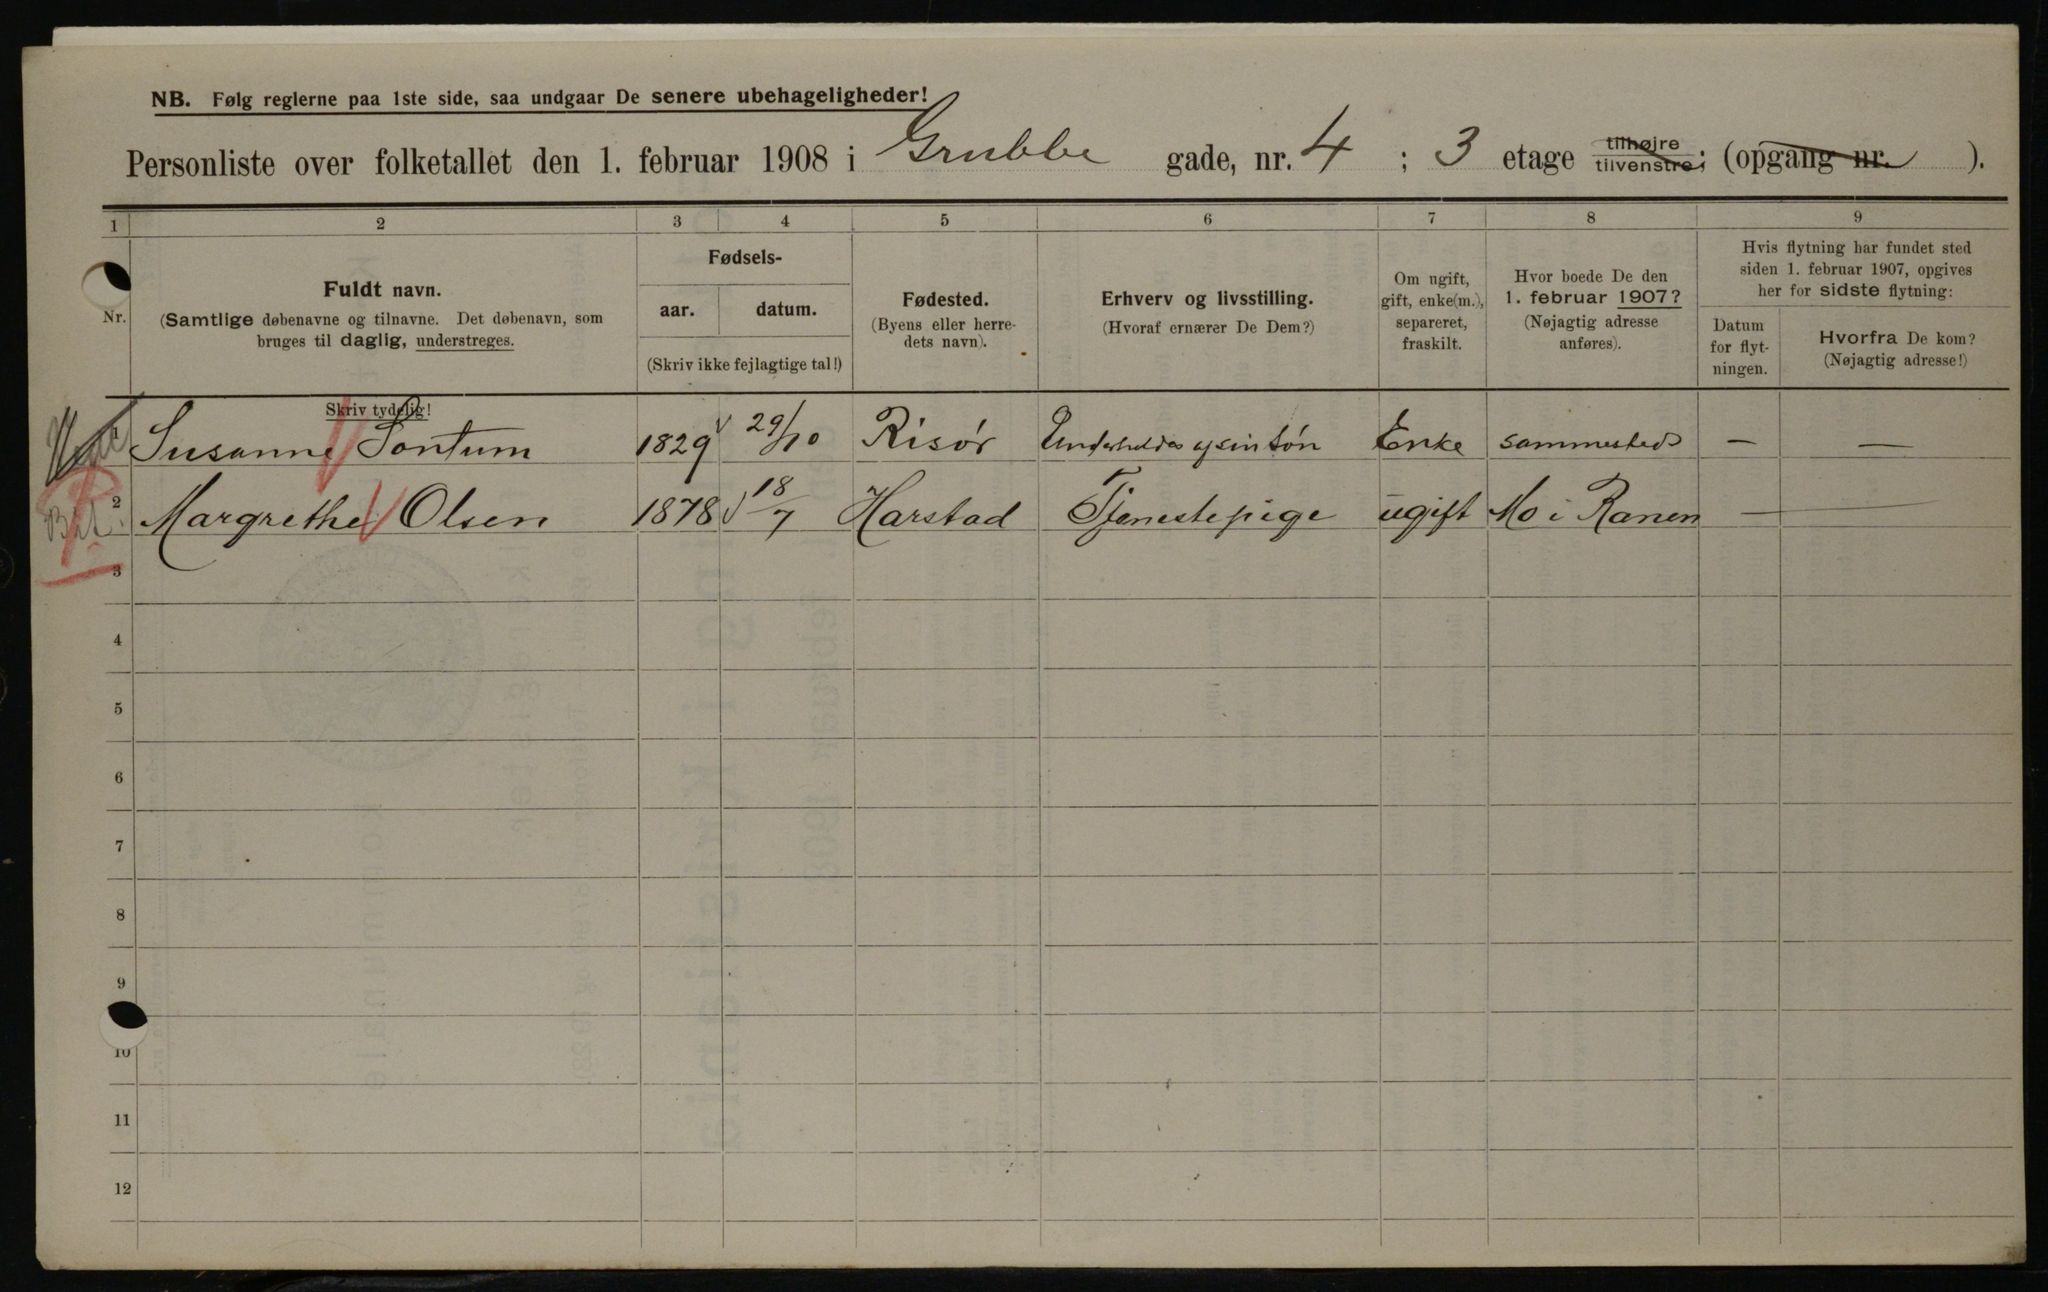 NB. Følg reglerne paa 1ste side, saa undgaar De senere ubehageligheder!
Personliste over folketallet den 1. februar 1908 i Grubbe gade, nr. 4 ; 3 etage tilhøjre tilvenstre; (opgang nr. ).
1 2 3 4 5 6 7 8 9
Nr.
Fuldt navn.
(Samtlige døbenavne og tilnavne. Det døbenavn, som
bruges til daglig, understreges.
Skriv tydelig!
Fødsels-
aar. datum.
(Skriv ikke fejlagtige tal!)
Fødested.
(Byens eller herre-
dets navn).
Erhverv og livsstilling.
(Hvoraf ernærer De Dem?)
Om ugift,
gift, enke(m.),
separeret,
fraskilt.
Hvor boede De den
1. februar 1907?
(Nøjagtig adresse
anføres).
Hvis flytning har fundet sted
siden 1. februar 1907, opgives
her for sidste flytning:
Datum
for flyt-
ningen.
Hvorfra De kom?
(Nøjagtig adresse!)
1 Susanne Sontum 1829 29/10 Risør Underholdes af sin søn Enke sammesteds — —
2 Margrethe Olsen 1878 18/7 Harstad Tjenestepige ugift Mo i Ranen — —
3
4
5
6
7
8
9
10
11
12